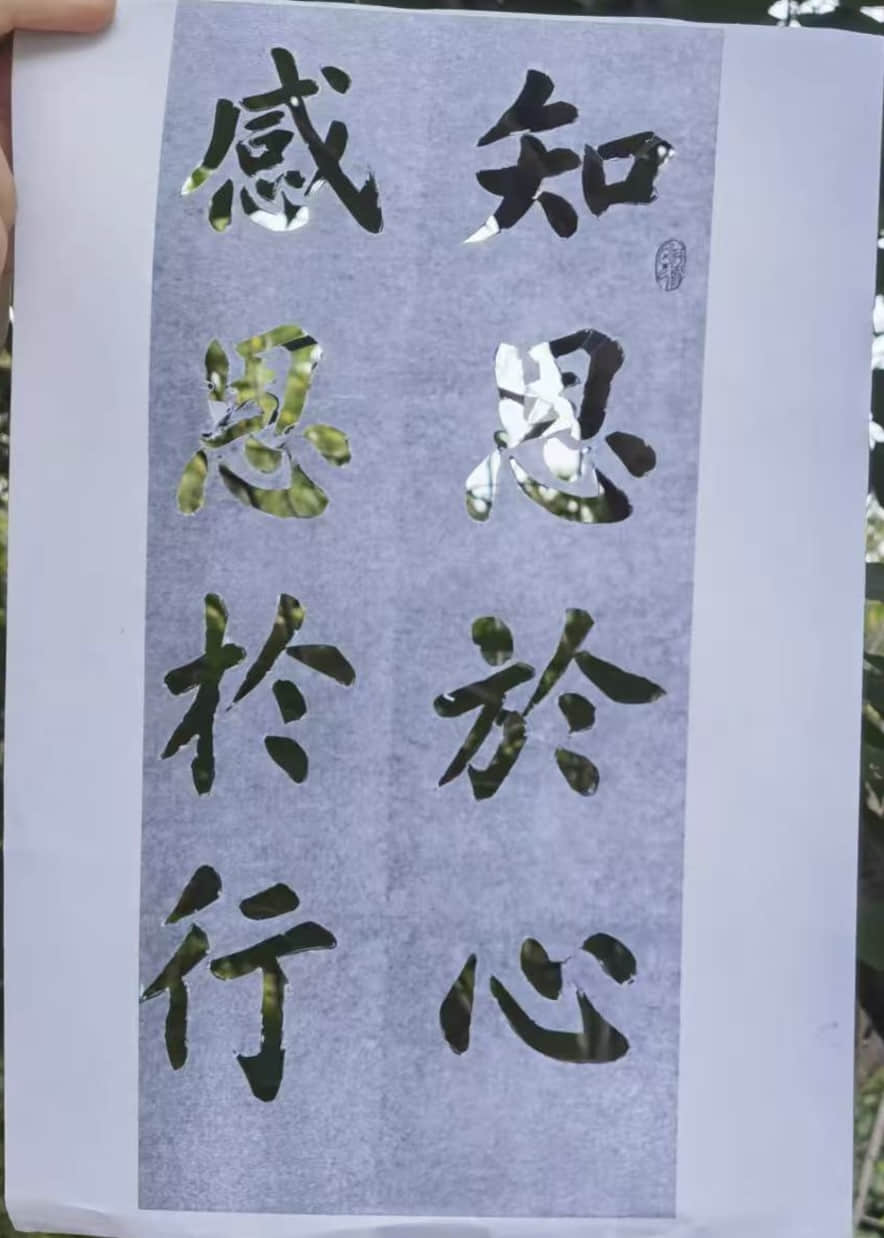 知恩於心
感恩於行